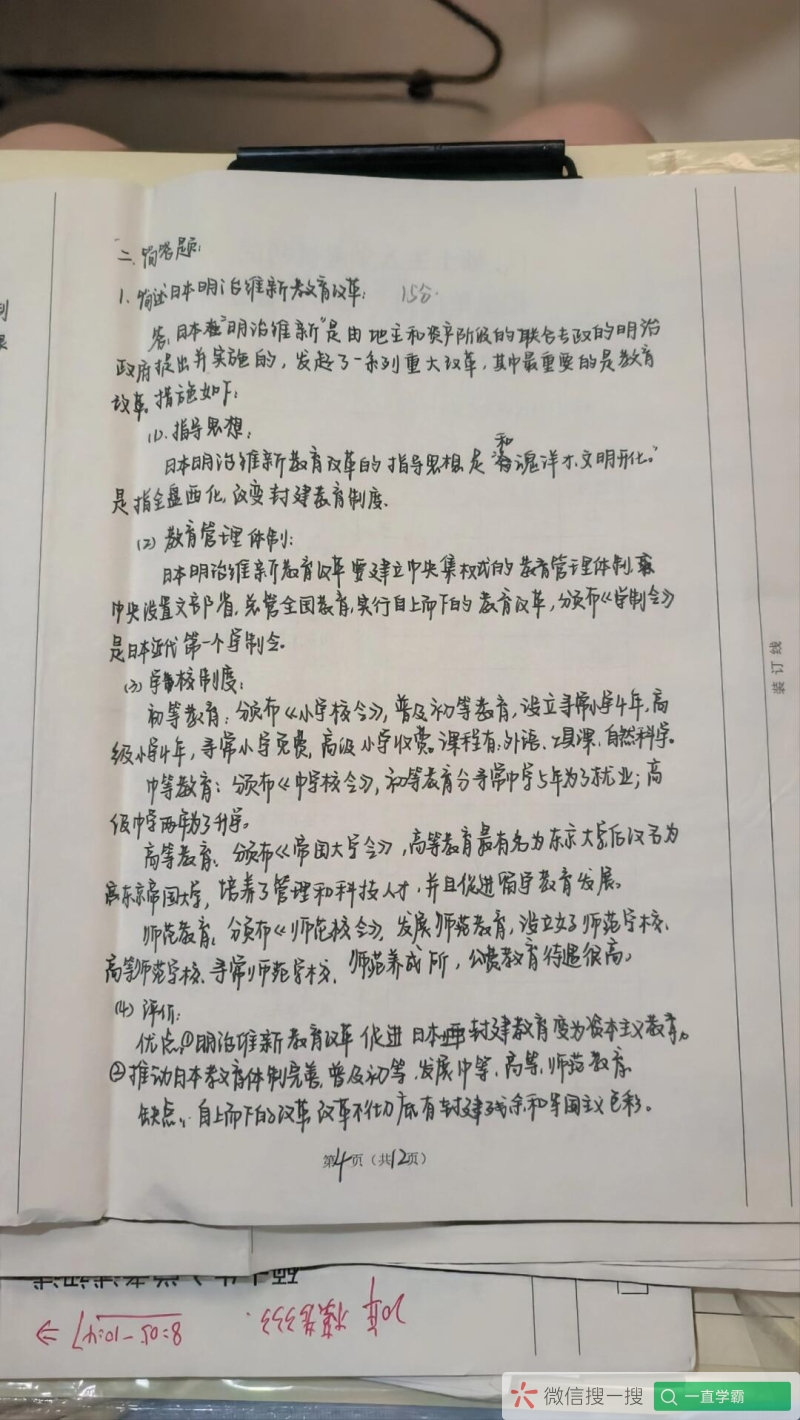 二、简答题:
1. 简述日本明治维新教育改革: 15分.
答:日本在"明治维新"是由地主和资产阶级的联合专政的明治
政府提出并实施的,发起了一系列重大改革,其中最重要的是教育
改革,措施如下:
(1). 指导思想:
日本明治维新教育改革的指导思想是"和魂洋才,文明开化。"
是指全盘西化,改变封建教育制度.
(2) 教育管理体制:
日本明治维新教育改革要建立中央集权式的教育管理体制,
中央设置文部省,总管全国教育,实行自上而下的教育改革,颁布《学制令》
是日本近代第一个学制令。
(3) 学校制度:
初等教育:颁布《小学校令》,普及初等教育,设立寻常小学4年,高
级小学4年,寻常小学免费,高级小学收费。课程有:外语、,自然科学。
中等教育:颁布《中学校令》,初等教育分寻常中学5年为了就业;高
级中学两年为了升学。
高等教育:颁布《帝国大学令》,高等教育最有名为东京大学后改名为
东京帝国大学,培养了管理和科技人才,并且促进留学教育发展。
师范教育:颁布《师范校令》,发展师范教育,设立女子师范学校、
高等师范学校、寻常师范学校、师范养成所,公费教育待遇很高。
(4) 评价:
优点:①明治维新教育改革促进日本封建教育变为资本主义教育。
②推动日本教育体制完善,普及初等,发展中等、高等,师范教育.
缺点:自上而下的改革,改革不彻底,有封建残余和军国主义色彩。
第4页(共12页)
8:05-10:47
333
装订线
微信搜一搜
一直学霸